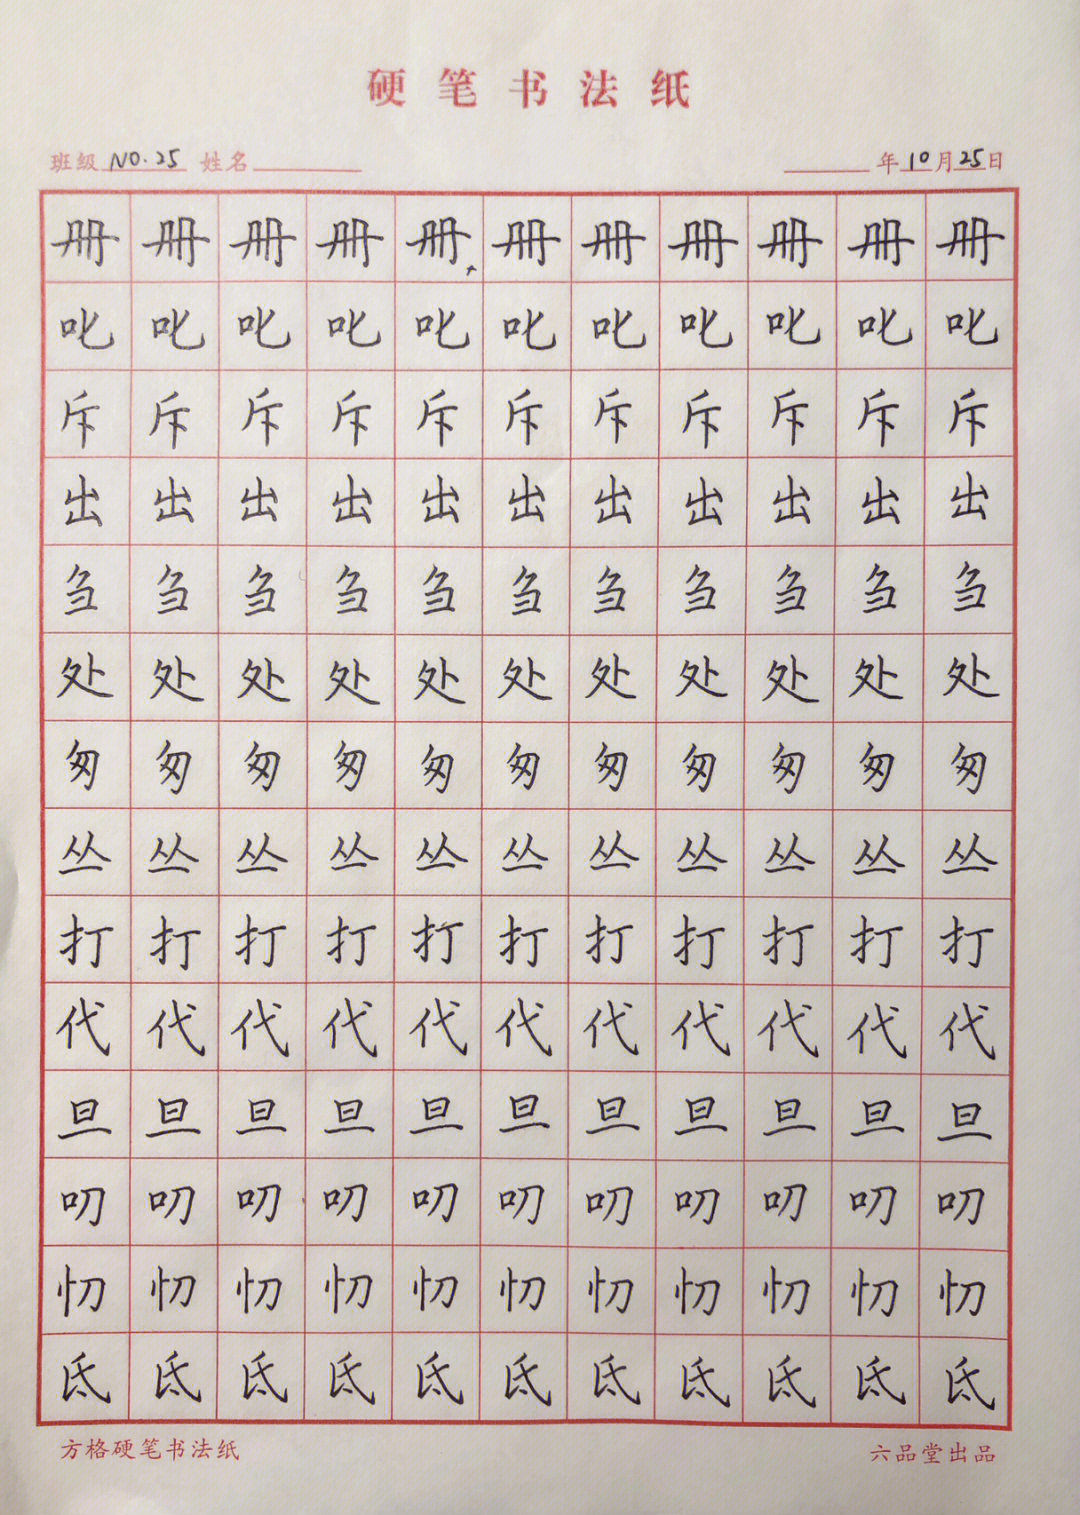 硬笔书法纸
班级 NO.25 姓名 年10月25日
册册册册册册册册册册册
叱叱叱叱叱叱叱叱叱叱叱
斥斥斥斥斥斥斥斥斥斥斥
出出出出出出出出出出出
刍刍刍刍刍刍刍刍刍刍刍
处处处处处处处处处处处
匆匆匆匆匆匆匆匆匆匆匆
丛丛丛丛丛丛丛丛丛丛丛
打打打打打打打打打打打
代代代代代代代代代代代
旦旦旦旦旦旦旦旦旦旦旦
叨叨叨叨叨叨叨叨叨叨叨
忉忉忉忉忉忉忉忉忉忉忉
氐氐氐氐氐氐氐氐氐氐氐
方格硬笔书法纸 六品堂出品